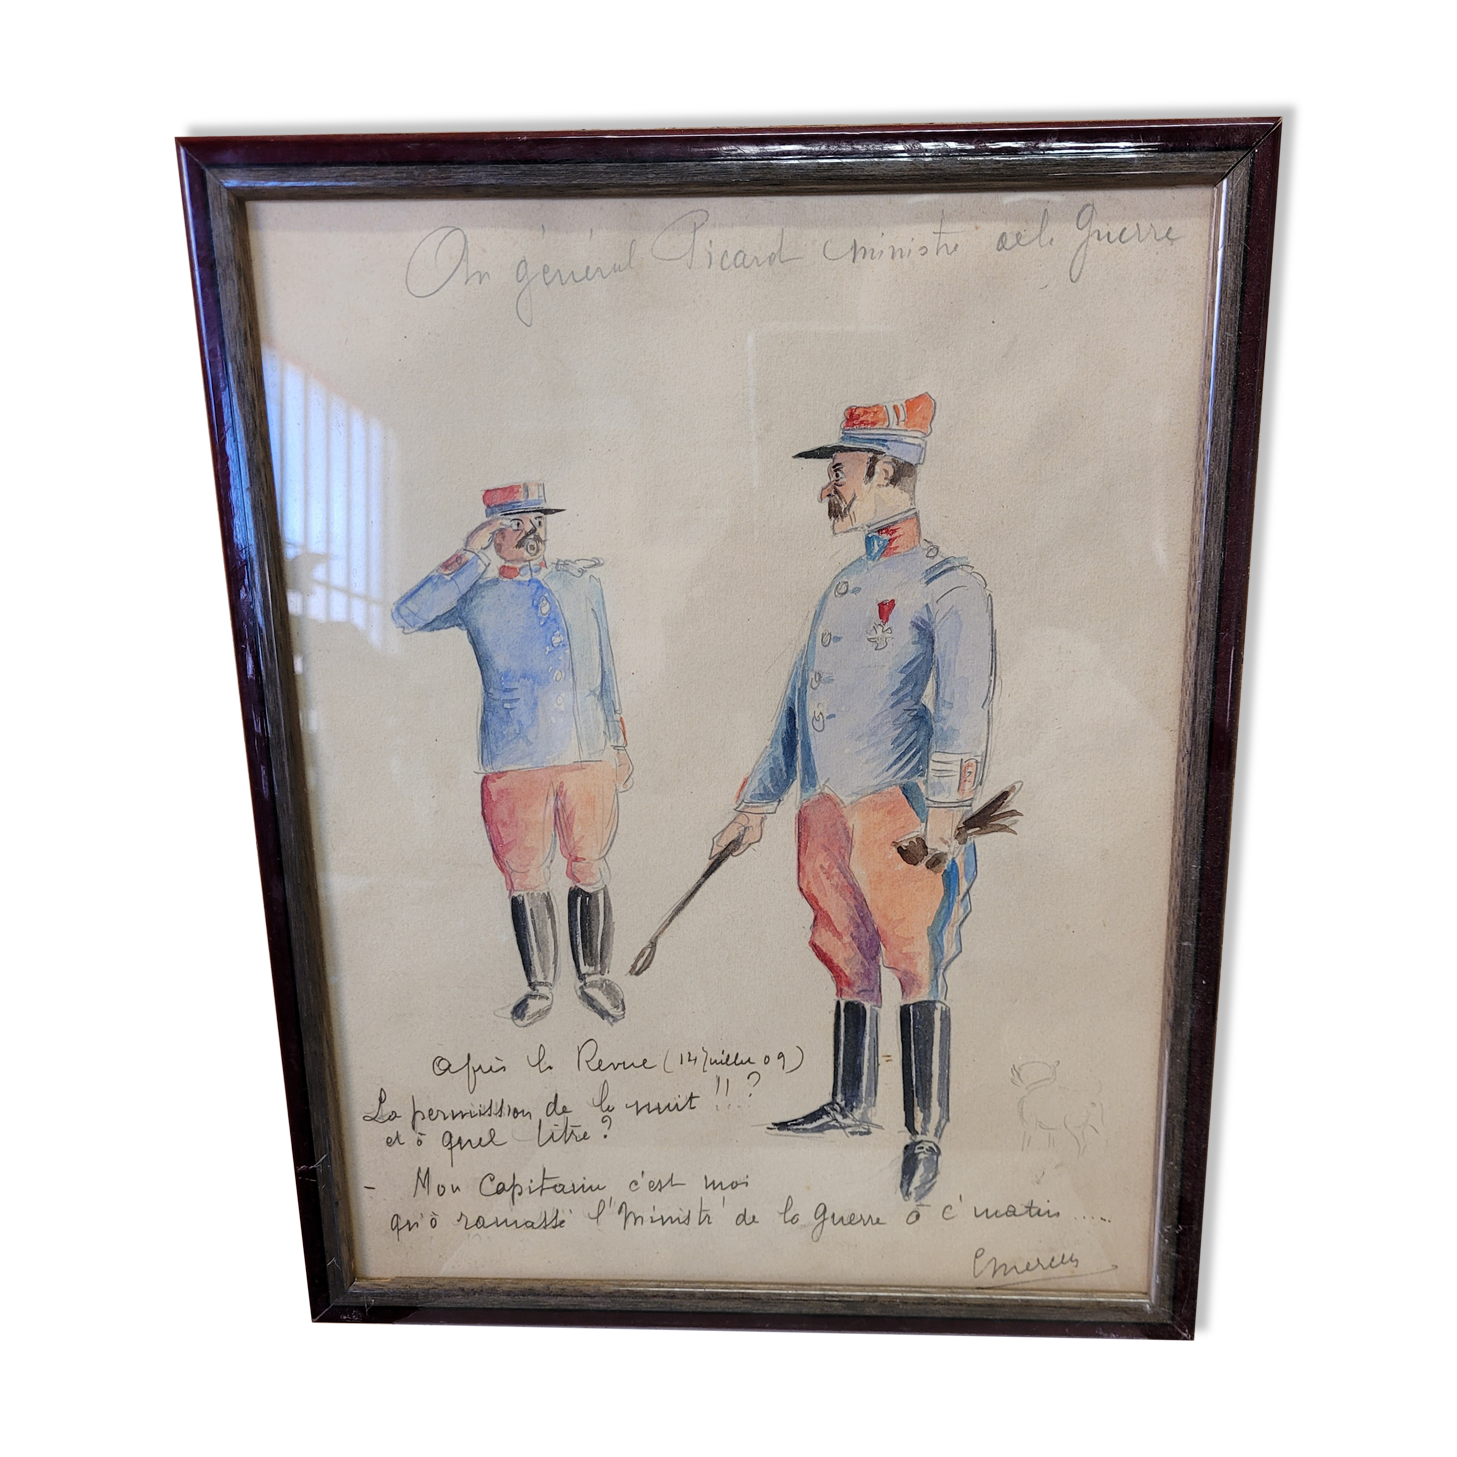 Au général Picard ministre de la Guerre
Après la Revue (14 Juillet 09)
La permission de la nuit !! ?
et à quel titre ?
- Mon Capitaine c'est moi
qu'à ramassé l'Ministr' de la Guerre à c'matin.....